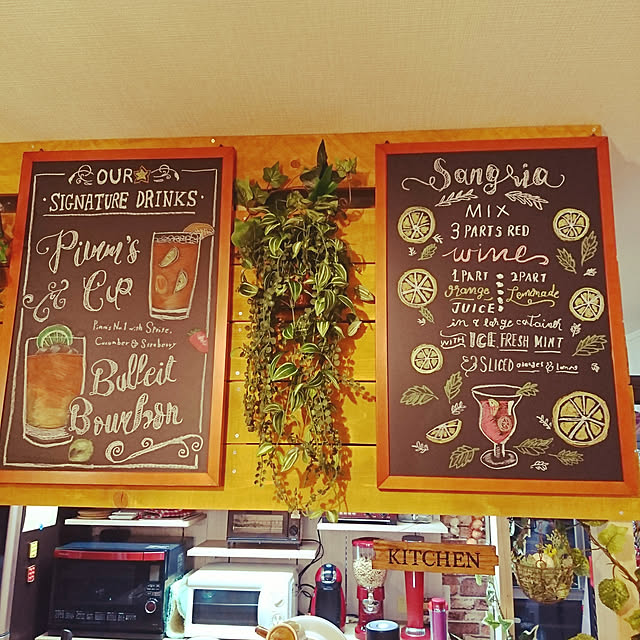 OUR
SIGNATURE DRINKS
Pimm's
& Cup
Pimm's No.1 with Sprite,
Cucumber & Strawberry
Bulleit
Bourbon
Sangria
MIX
3 PARTS RED
wine
1 PART 2 PART
orange Lemonade
JUICE
in a large
WITH ICE FRESH MINT
& SLICED oranges & lemons
KITCHEN